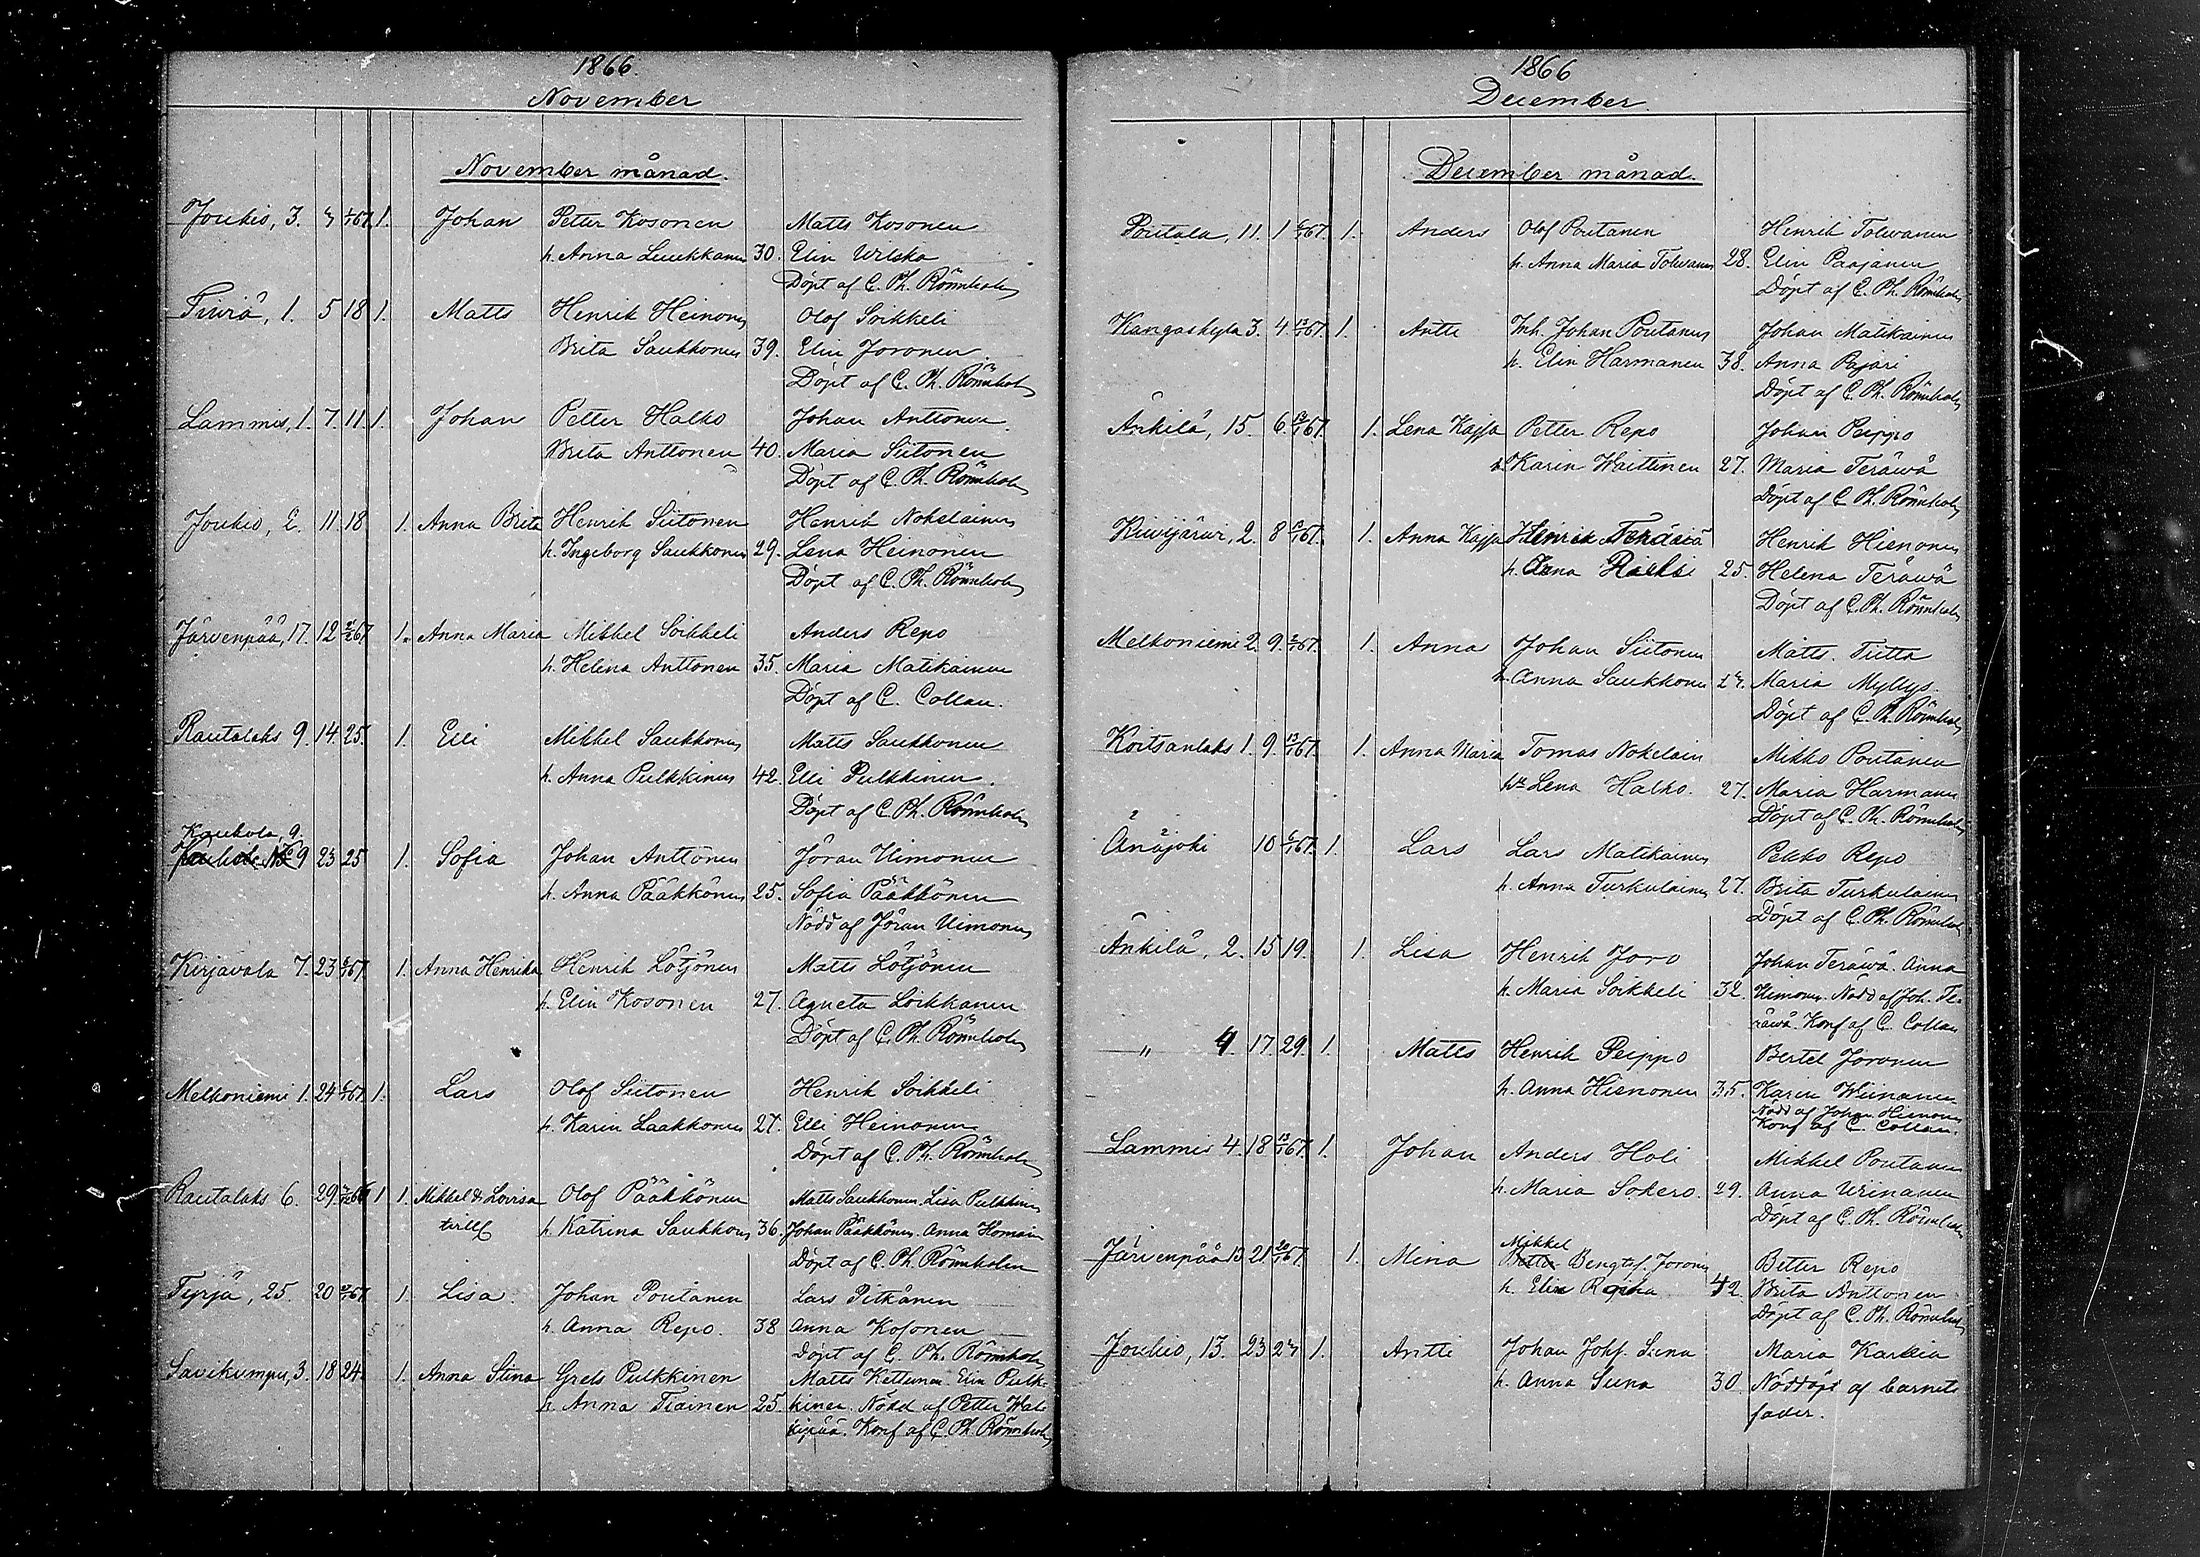 1866.
November
November månad.
Joukio, 3. 4 1/1 67. 1. Johan Petter Kosonen Matts Kosonen
h. Anna Luukkanen 30. Elin Wilska
Döpt af C. Ph. Rönnholm
Tiuriä, 1. 5 18 1. Matts Henrik Heinonen Olof Soikkeli
Brita Saukkonen 39. Elin Joronen
Döpt af C. Ph. Rönnholm
Lammis, 1. 7. 11. 1. Johan Petter Halko Johan Anttonen
Brita Anttonen 40. Maria Siitonen
Döpt af C. Ph. Rönnholm
Joukio, 2. 11. 18 1. Anna Brita Henrik Siitonen Henrik Nokelainen
h. Ingeborg Saukkonen 29. Lena Heinonen
Döpt af C. Ph. Rönnholm
Järvenpää, 17. 12 67 1. Anna Maria Mikkel Soikkeli Anders Repo
h. Helena Anttonen 35. Maria Matikainen
Döpt af C. Collan.
Rautalaks 9. 14. 25. 1. Elli Mikkel Saukkonen Matts Saukkonen
h. Anna Pulkkinen 42. Elli Pulkkinen
Döpt af C. Ph. Rönnholm
Kaukola, 9.
9 23 25 1. Sofia Johan Anttonen Jöran Uimonen
h. Anna Pääkkönen 25. Sofia Pääkkönen
Nödd af Jöran Uimonen
Kirjavala 7. 23 67 1. Anna Henrika Henrik Lötjönen Matts Lötjönen
h. Elin Kosonen 27. Agneta Loikkanen
Döpt af C. Ph. Rönnholm
Melkoniemi 1. 24 67 1. Lars Olof Siitonen Henrik Soikkeli
h. Karin Laakkonen 27. Elli Heinonen
Döpt af C. Ph. Rönnholm
Rautalaks 6. 29 66 1 1. Mikkel & Lovisa Olof Pääkkönen Matts Saukkonen. Lisa Pulkkinen
tvill h. Katrina Saukkonen 36. Johan Pääkkönen. Anna Homain
Döpt af C. Ph. Rönnholm
Tyrjä, 25. 20 67 1. Lisa. Johan Poutanen Lars Pitkänen
h. Anna Repo. 38 Anna Kosonen
Döpt af C. Ph. Rönnholm
Savikumpu, 3. 18 24. 1. Anna Stina Grels Pulkkinen Matts Kettunen Elin Pulk-
h. Anna Tiainen 25. kinen. Nödd af Petter
Konf af C. Ph. Rönnholm
1866
December
December månad.
Poutala, 11. 1 67. 1. Anders Olof Poutanen Henrik Tolvanen
h. Anna Maria Tolvanen 28. Elin Paajanen
Döpt af C. Ph. Rönnholm
Kangaskylä 3. 4 67. 1. Antti Inh. Johan Poutanen Johan Matikainen
h. Elin Harmanen 38. Anna Pajari
Döpt af C. Ph. Rönnholm
Änkilä, 15. 6. 67. 1. Lena Kajsa Petter Repo Johan Peippo
h. Karin Waittinen 27. Maria Teräwä
Döpt af C. Ph. Rönnholm
Kiwijärwi, 2. 8 67. 1. Anna Kajsa Henrik Henrik Hienonen
h. Anna 25. Helena Teräwä
Döpt af C. Ph. Rönnholm
Melkoniemi 2. 9. 67. 1. Anna Johan Siitonen Matts. Tiitta
h. Anna Saukkonen 24. Maria Myllys.
Döpt af C. Ph. Rönnholm
Koitsanlaks 1. 9. 67. 1. Anna Maria Tomas Nokelain Mikko Poutanen
Lena Halko. 27. Maria Harmanen
Döpt af C. Ph. Rönnholm
Änäjoki 10 67. 1. Lars Lars Matikainen Pekko Repo
h. Anna Turkulainen 27. Brita Turkulainen
Döpt af C. Ph. Rönnholm
Änkilä, 2. 15 19. 1. Lisa Henrik Joro Johan Teräwä. Anna
h. Maria Soikkeli 32. Uimonen. Nödd af Joh. Te-
räwä. Konf af C. Collan
„ 4. 17 29. 1. Matts Henrik Peippo Bertel Joronen
h. Anna Hienonen 35. Karin Weinanen
Nödd af Johan Hienonen
Konf af C. Collan.
Lammis 4. 18 67. 1. Johan Anders Holi Mikkel Poutanen
h. Maria Sokero. 29. Anna Urinanen
Döpt af C. Ph. Rönnholm
Mikkel
Järvenpää 13 21 67. 1. Mina Bengtsf. Joronen Petter Repo
h. Elin 42 Brita Anttonen
Döpt af C. Ph. Rönnholm
Joukio, 13. 23 24 1. Antti Johan Johf. Suna Maria Karkia
h. Anna Suna 30. Nöddöpt af barnets
fader.